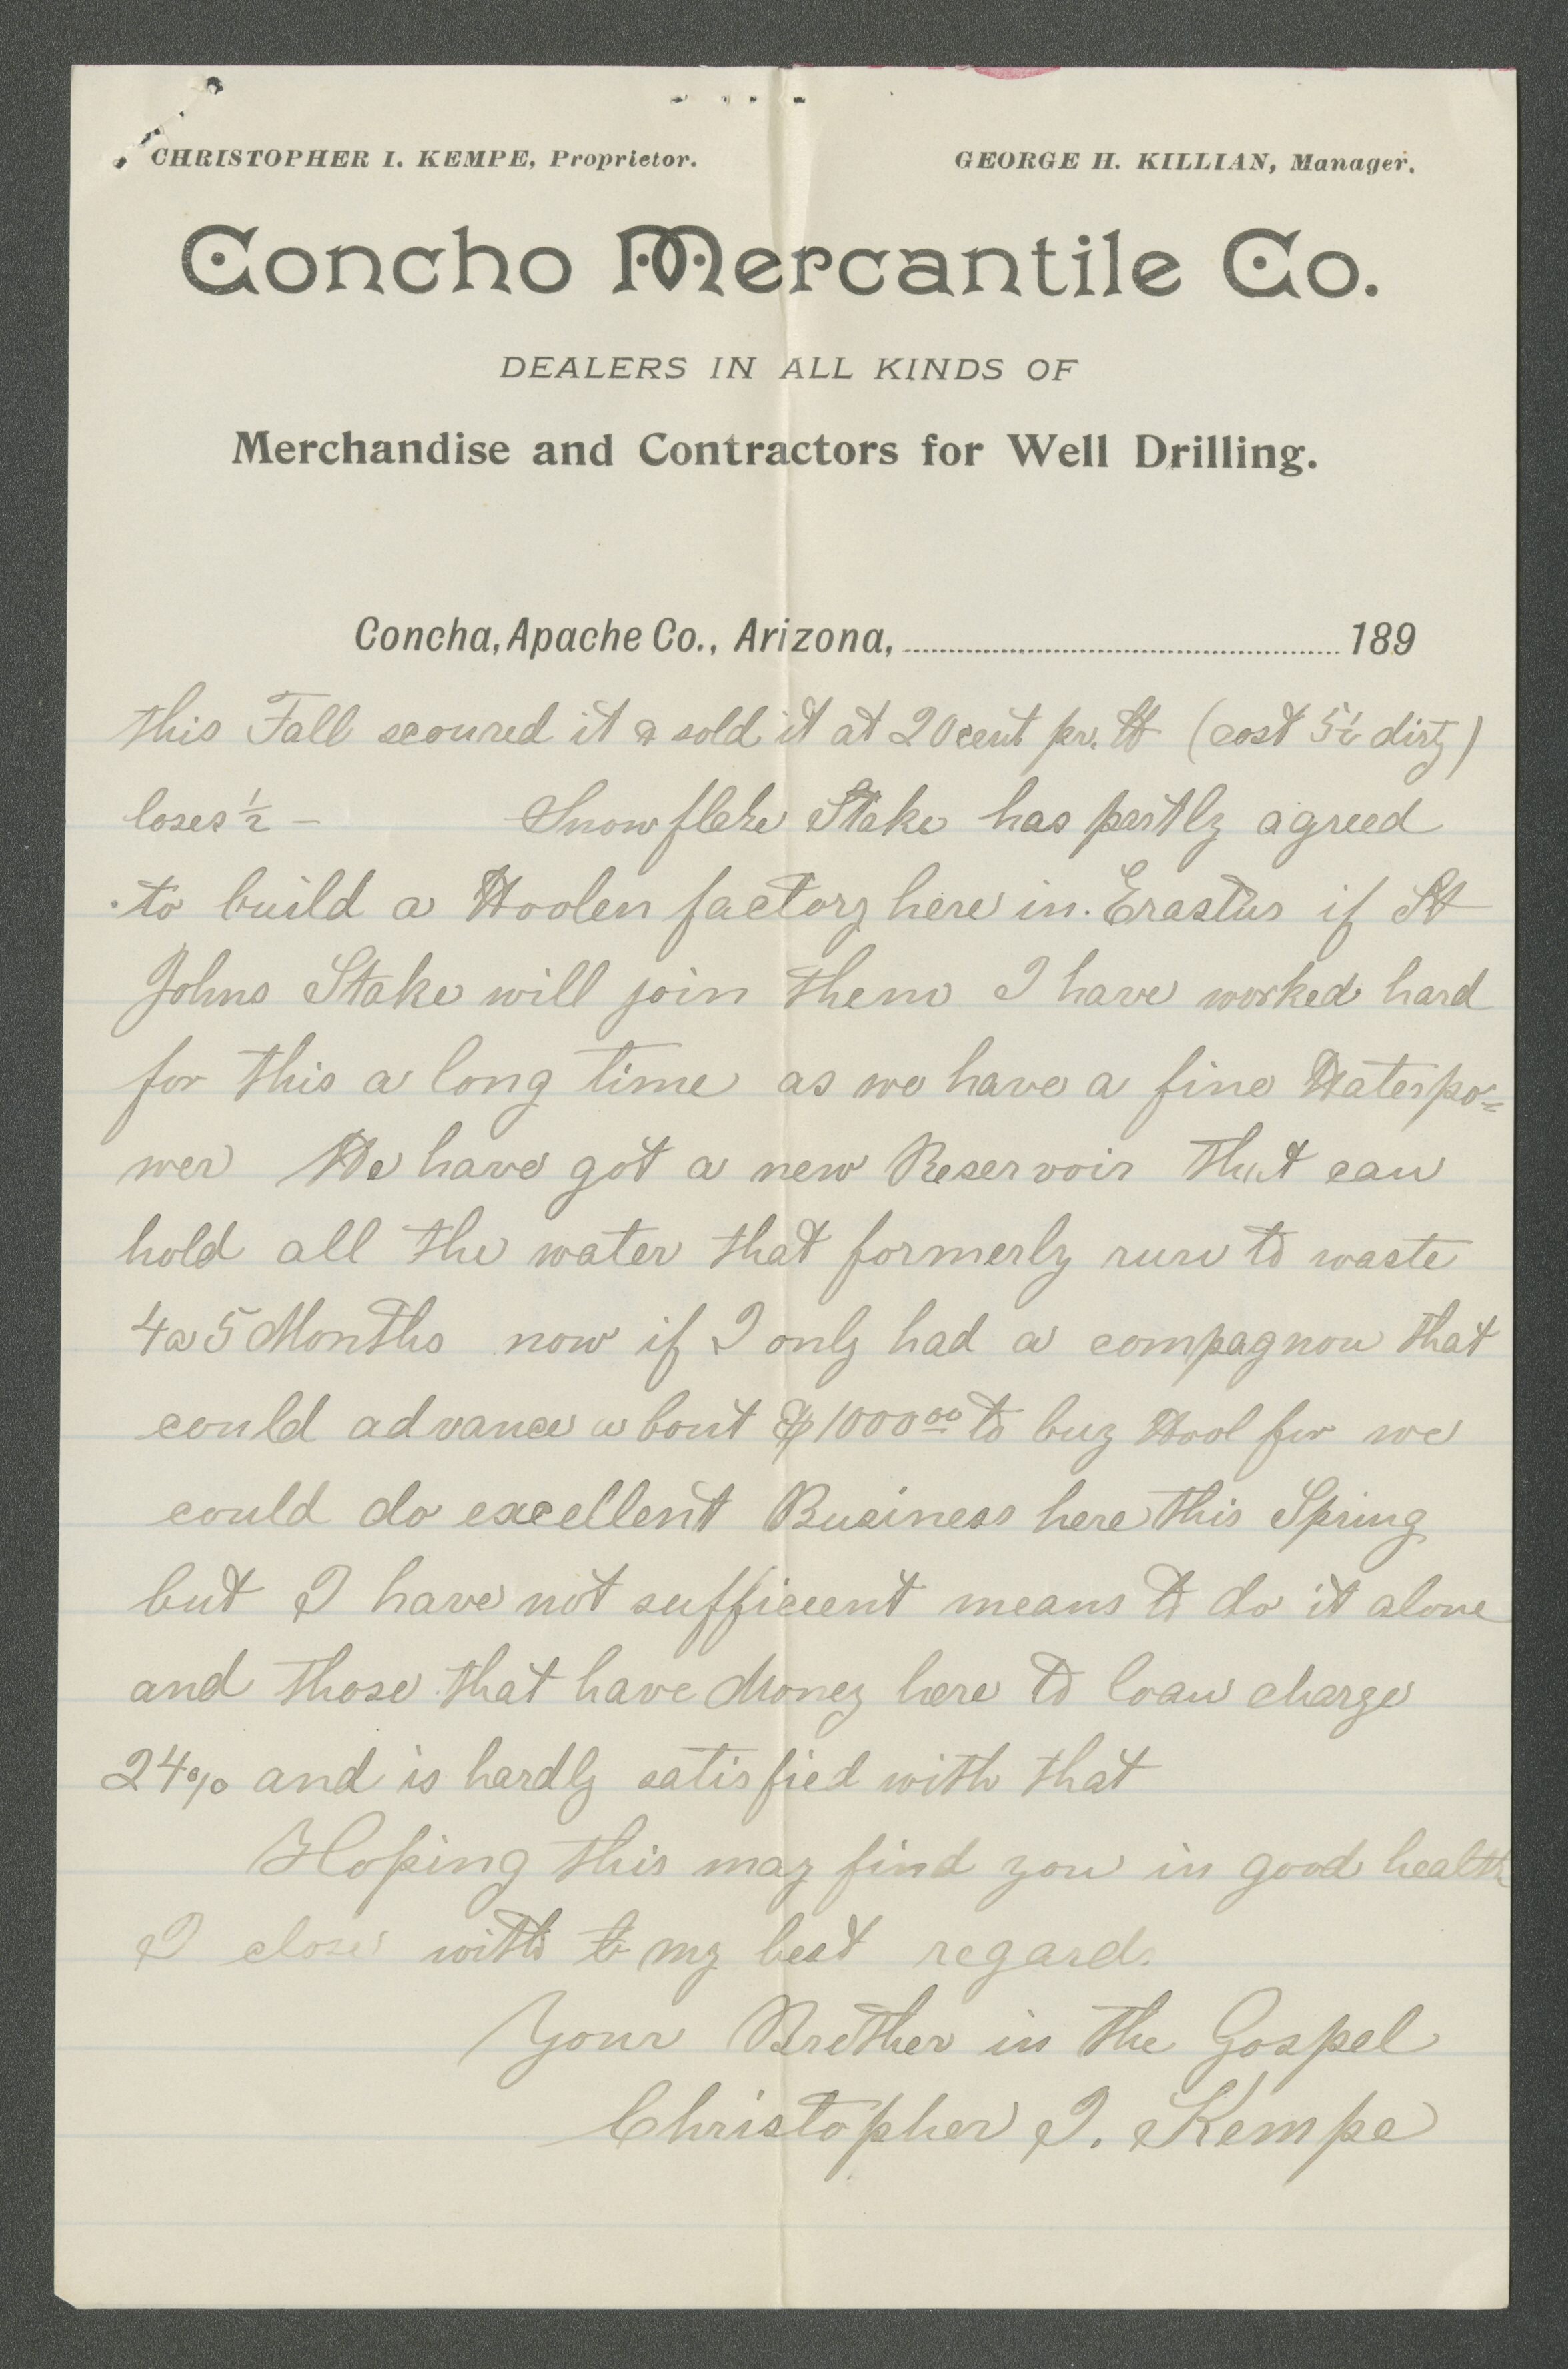 CHRISTOPHER I. KEMPE, Proprietor. GEORGE H. KILLIAN, Manager.
Concho Mercantile Co.
DEALERS IN ALL KINDS OF
Merchandise and Contractors for Well Drilling.
Concha, Apache Co., Arizona, 189
this Fall scoured it & sold it at 20 cent pr. ℔ (cost 5½ dirty)
loses ½ – Snowflake Stake has partly agreed
to build a Woolen factory here in Erastus if St
Johns Stake will join them I have worked hard
for this a long time as we have a fine Waterpo=
wer We have got a new Reservoir that can
hold all the water that formerly run to waste
4 a 5 Months now if I only had a compagnon that
could advance about $1000.00 to buy Wool for we
could do excellent Business here this Spring
but I have not sufficient means to do it alone
and those that have Money here to loan charge
24% and is hardly satisfied with that
Hoping this may find you in good health
I close with to my best regard.
Your Brother in the Gospel
Christopher I. Kempe